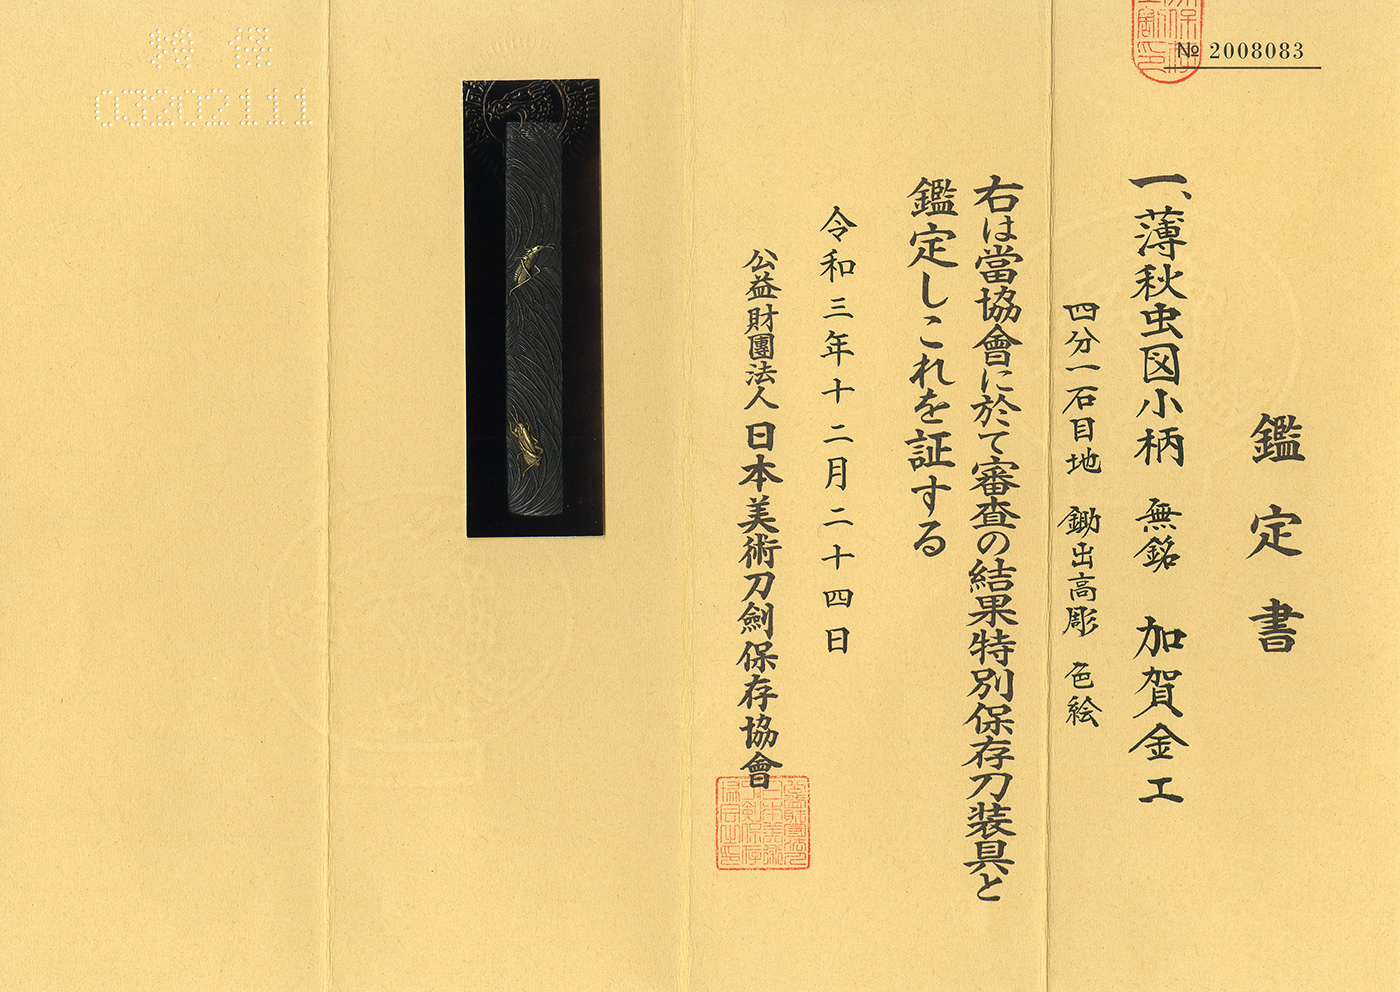 № 2008083
鑑定書
一、薄秋虫図小柄　無銘　加賀金工
四分一石目地　鋤出高彫　色絵
右は當協會に於て審査の結果特別保存刀装具と
鑑定しこれを証する
令和三年十二月二十四日
公益財團法人日本美術刀劍保存協會
特保
03202111